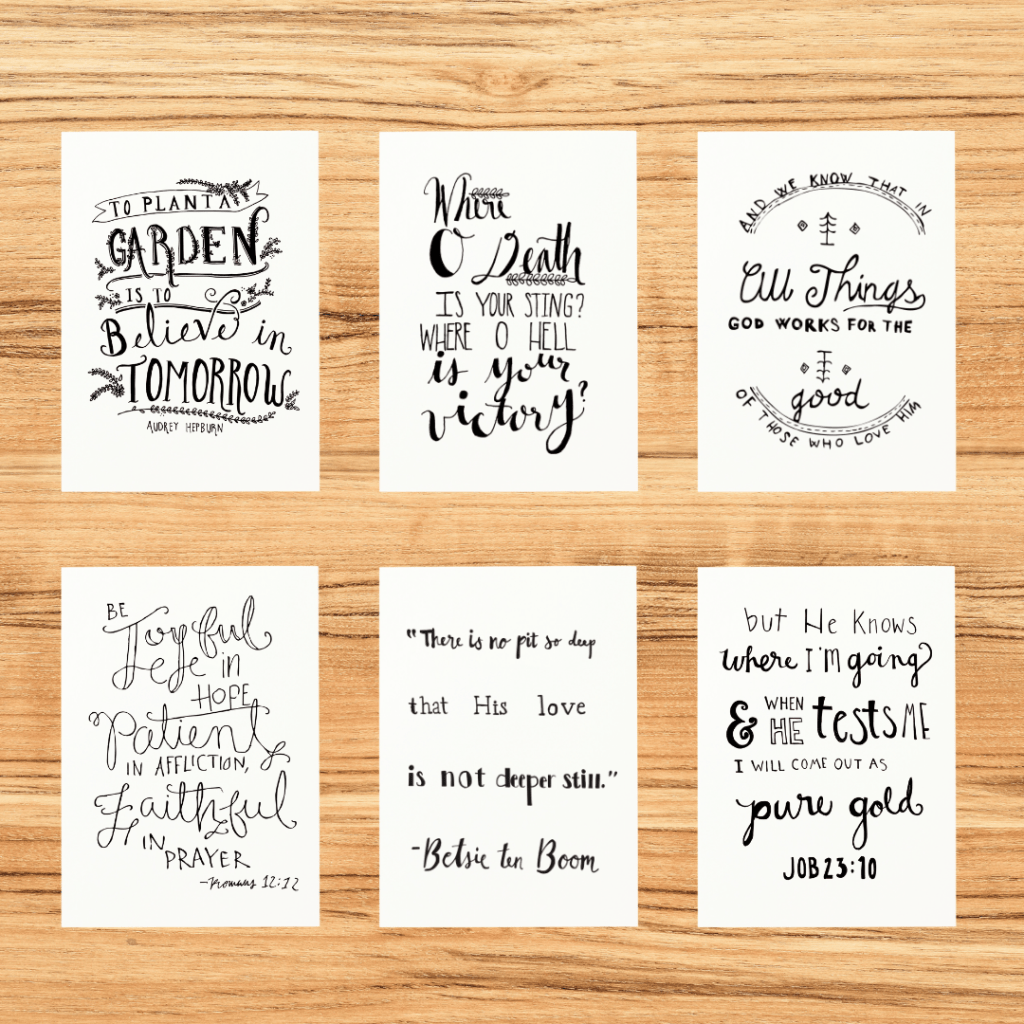 TO PLANT A
GARDEN
IS TO
Believe in
TOMORROW
AUDREY HEPBURN
Where
O Death
IS YOUR STING?
WHERE O HELL
is your
victory?
AND WE KNOW THAT IN
All Things
GOD WORKS FOR THE
good
OF THOSE WHO LOVE HIM
BE
Joyful
in
HOPE
Patient
IN AFFLICTION,
Faithful
IN
PRAYER
-Romans 12:12
"There is no pit so deep
that His love
is not deeper still."
-Betsie ten Boom
but He Knows
where I'm going
& WHEN HE tests ME
I WILL COME OUT AS
pure gold
JOB 23:10